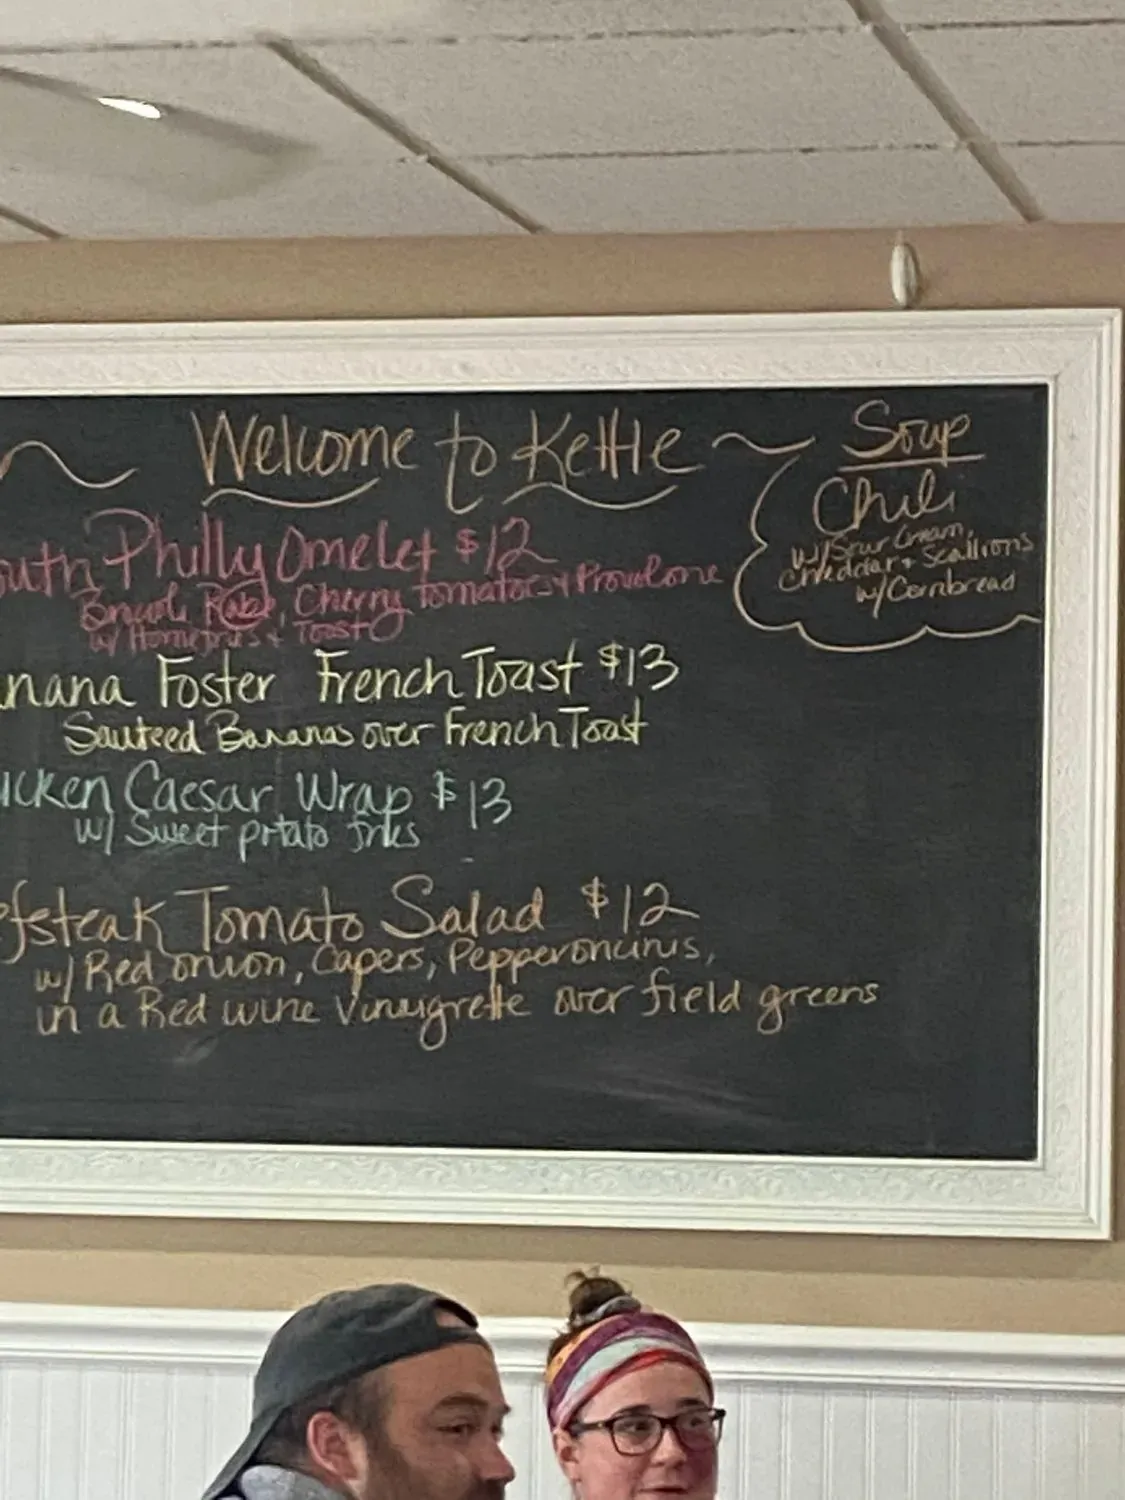 Welcome to Kettle
outh Philly Omelet $12
Broccoli Rabe, Cherry tomatoes + Provolone
w/ Homefries + Toast
nana Foster French Toast $13
Sauteed Bananas over French Toast
icken Caesar Wrap $13
w/ Sweet potato fries
efsteak Tomato Salad $12
w/ Red onion, Capers, Pepperoncinis,
in a Red wine Vinaigrette over field greens
Soup
Chili
w/ Sour Cream,
Cheddar + Scallions
w/ Cornbread